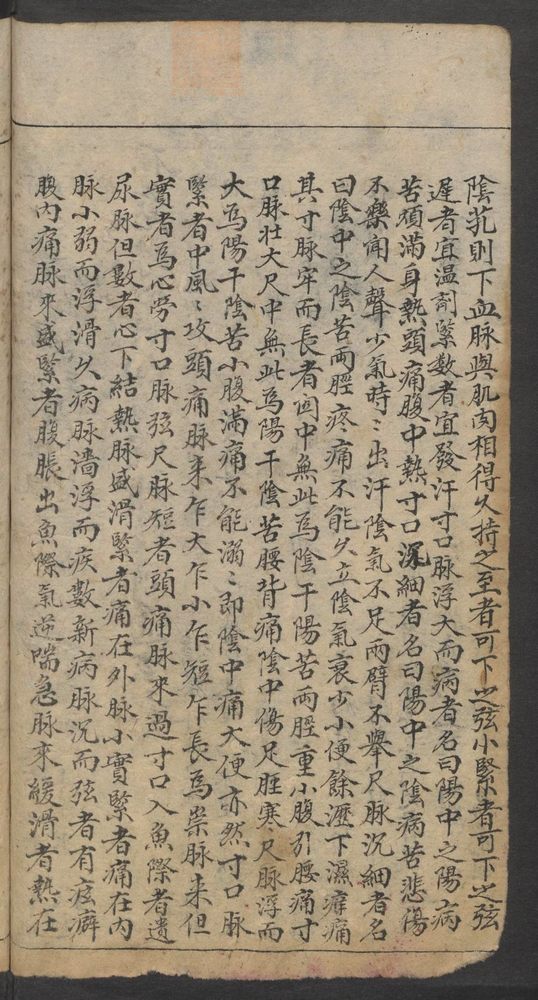 陰芤則下血脉與肌肉相得久持之至者可下之弦小緊者可下之弦
遲者宜温劑緊数者宜發汗寸口脉浮大而病者名曰陽中之陽病
苦煩滿身熱頭痛腹中熱寸口深細者名曰陽中之陰病苦悲傷
不樂聞人聲少氣時〻出汗陰氣不足兩臂不舉尺脉沉細者名
曰陰中之陰苦兩脛疼痛不能久立陰氣衰少小便餘瀝下濕癢痛
其寸脉牢而長者関中無此為陰干陽苦兩脛重小腹引腰痛寸
口脉壮大尺中無此為陽干陰苦腰背痛陰中傷足脛寒尺脉浮而
大為陽干陰苦小腹滿痛不能溺〻即陰中痛大便亦然寸口脉
緊者中風〻攻頭痛脉来乍大乍小乍短乍長為祟脉来但
實者為心勞寸口脉弦尺脉短者頭痛脉来過寸口入魚際者遺
尿脉但數者心下結熱脉盛滑緊者痛在外脉小實緊者痛在内
脉小弱而浮滑久病脉濇浮而疾數新病脉沉而弦者有痃癖
腹内痛脉来盛緊者腹脹出魚際氣逆喘急脉来緩滑者熱在